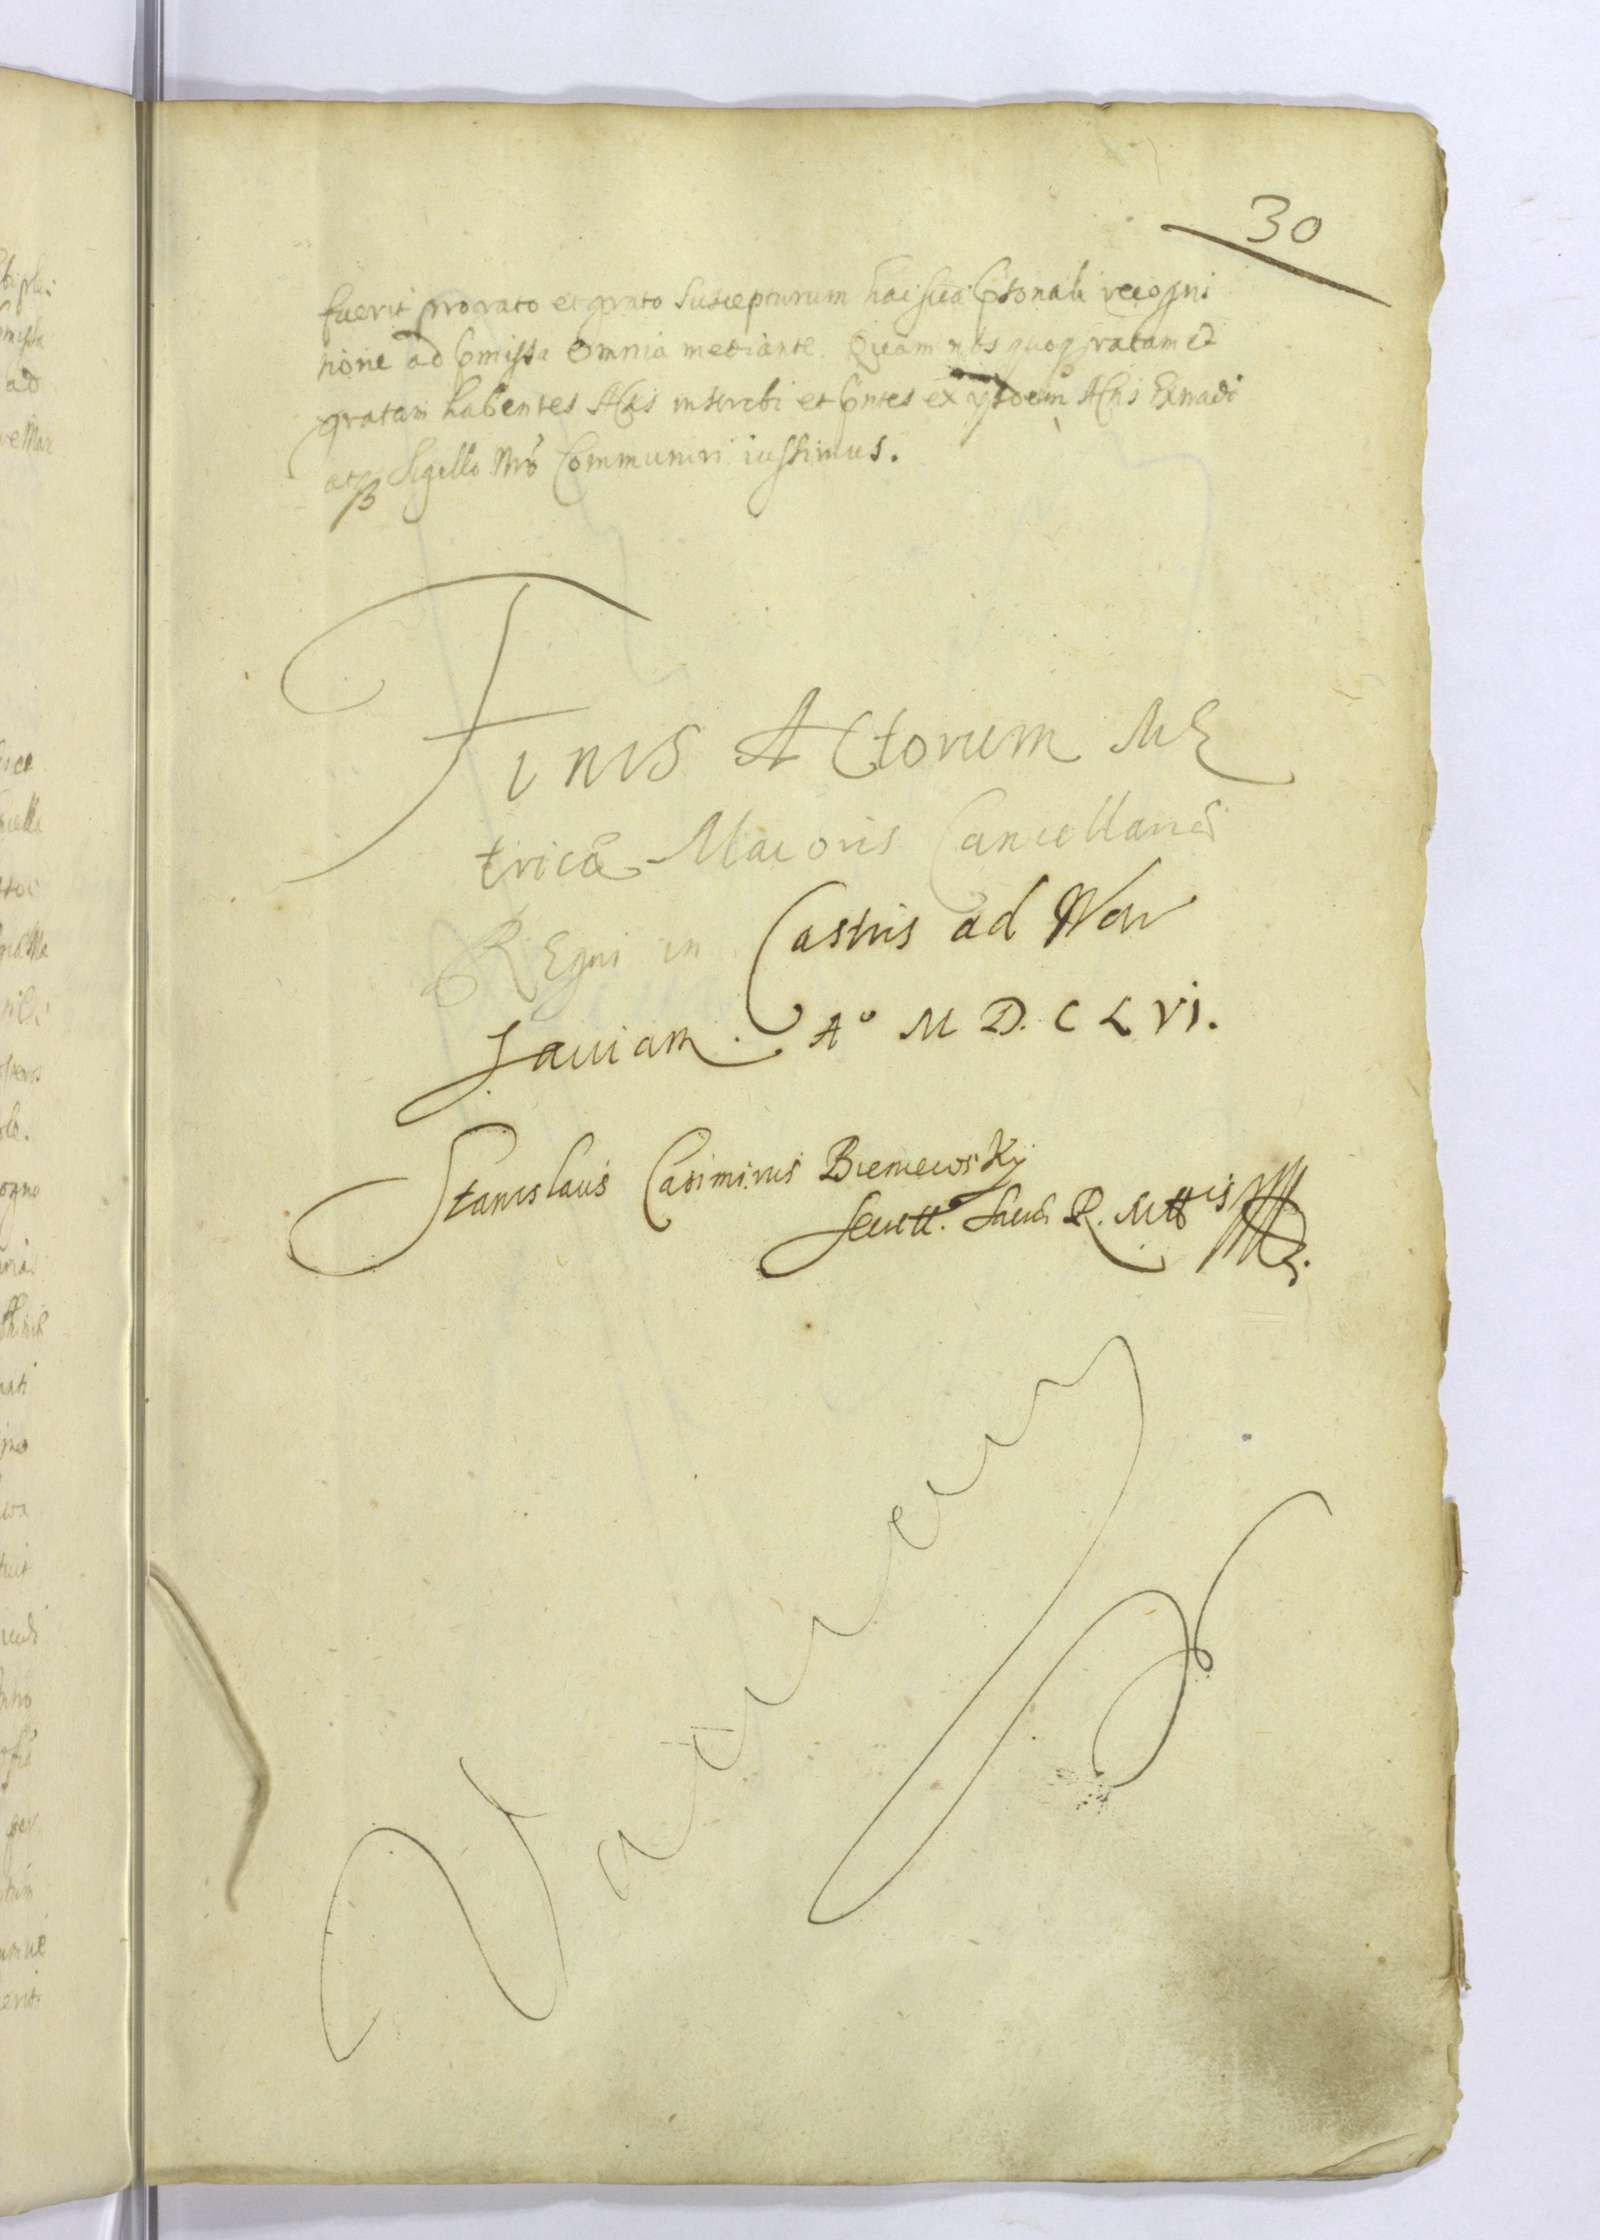 30
fuerit pro rato et grato suscepturum hac sua psonali recogni
tione ad pmissa omnia mediante. Quam nos quoq ratam et
gratam habentes Actis inscribi et pntes ex ijsdem Actis Extradi
atq Sigillo Nro Communiri iussimus.
Finis Actorum Me
tricæ Maioris Cancellariæ
Regni in Castris ad War
sauiam. A° M D. C L VI.
Stanislaus Casimirus Bieniewsky
R. Mttis
Vacuum